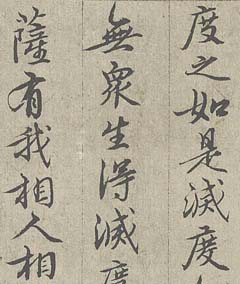 度之如是滅度
無衆生得滅度
薩有我相人相